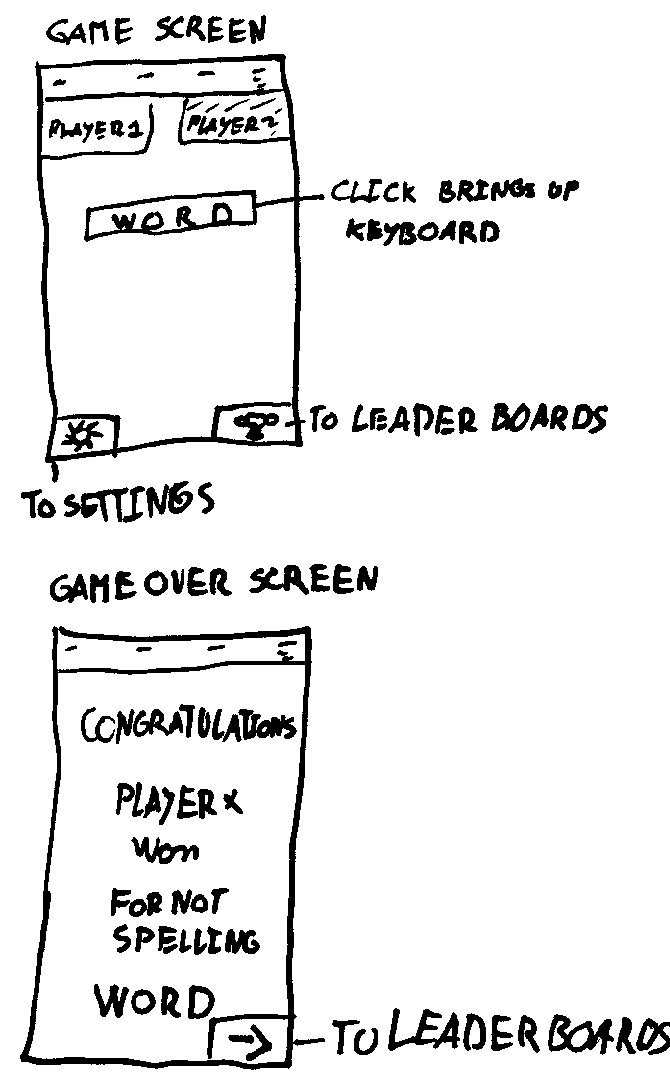 GAME SCREEN
PLAYER 1
PLAYER 2
WORD
CLICK BRINGS UP
KEYBOARD
TO LEADER BOARDS
TO SETTINGS
GAME OVER SCREEN
CONGRATULATIONS
PLAYER X
Won
FOR NOT
SPELLING
WORD
TO LEADER BOARDS